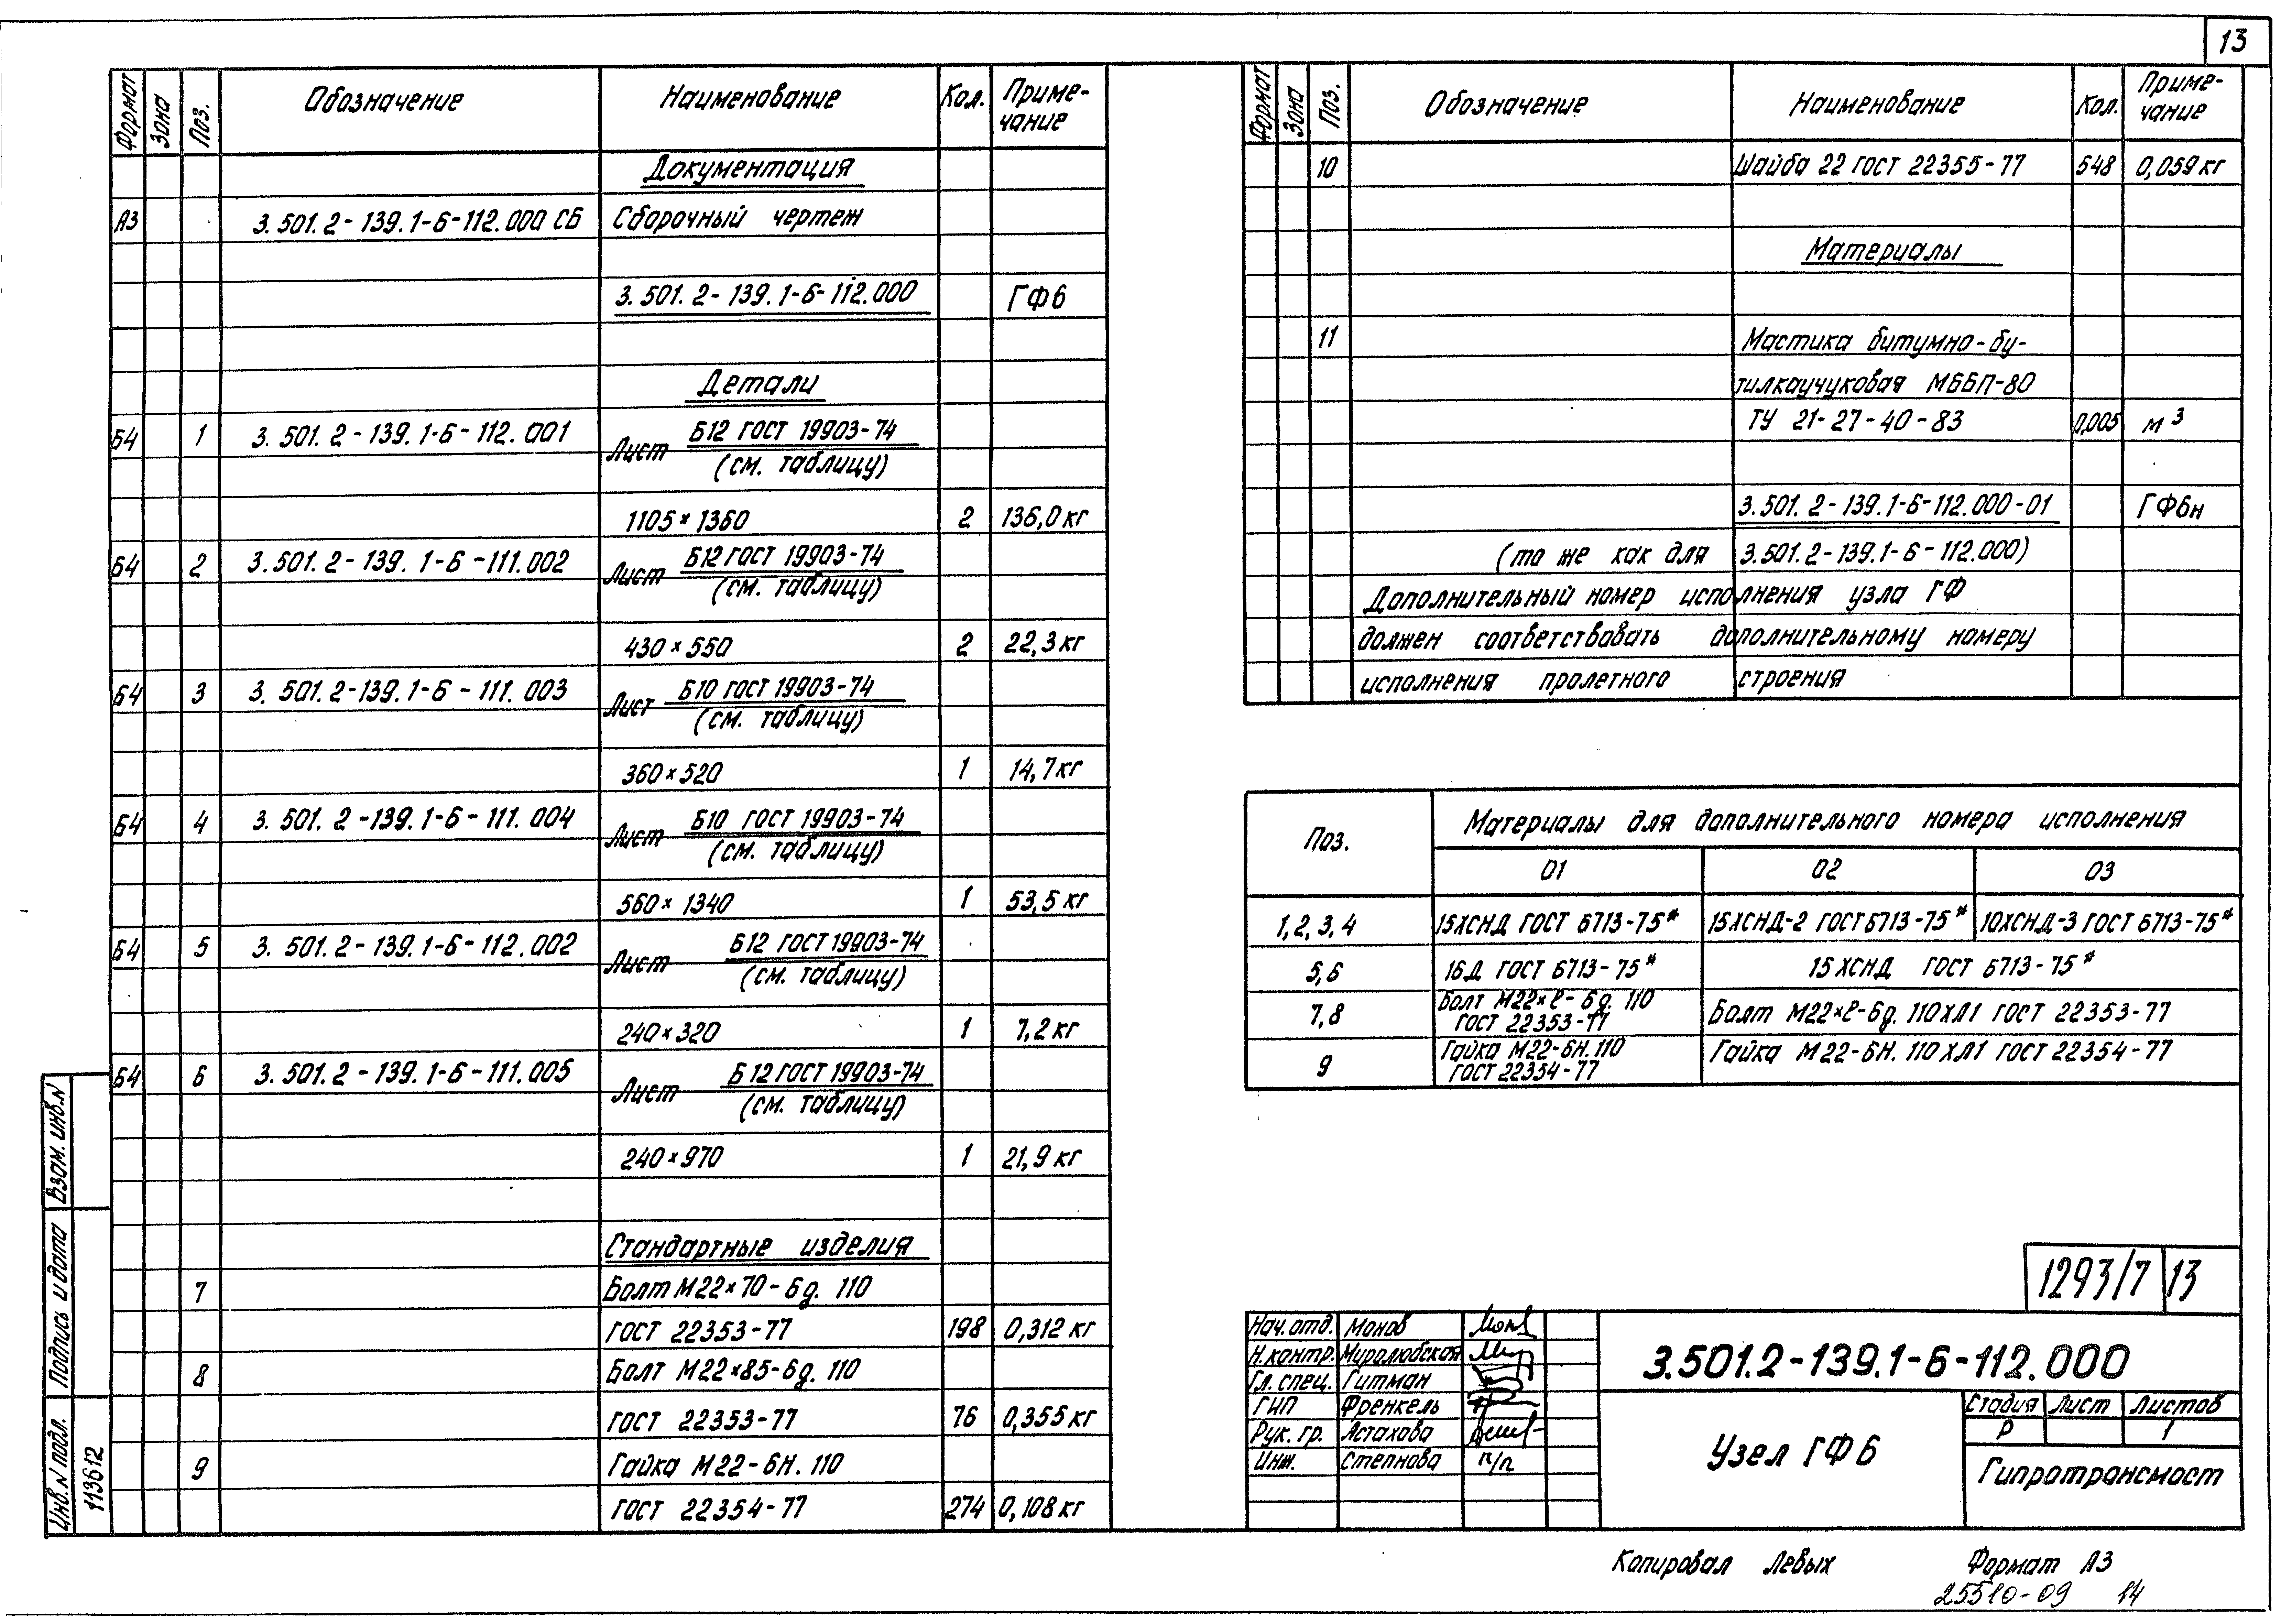 13
Формат Зона Поз. Обозначение Наименование Кол. Приме-чание
Документация
А3 3.501.2-139.1-6-112.000 СБ Сборочный чертеж
3.501.2-139.1-6-112.000 ГФ6
Детали
Б4 1 3.501.2-139.1-6-112.001 Лист Б12 ГОСТ 19903-74
(см. таблицу)
1105×1360 2 136,0 кг
Б4 2 3.501.2-139.1-6-111.002 Лист Б12 ГОСТ 19903-74
(см. таблицу)
430×550 2 22,3 кг
Б4 3 3.501.2-139.1-6-111.003 Лист Б10 ГОСТ 19903-74
(см. таблицу)
360×520 1 14,7 кг
Б4 4 3.501.2-139.1-6-111.004 Лист Б10 ГОСТ 19903-74
(см. таблицу)
560×1340 1 53,5 кг
Б4 5 3.501.2-139.1-6-112.002 Лист Б12 ГОСТ 19903-74
(см. таблицу)
240×320 1 7,2 кг
Б4 6 3.501.2-139.1-6-111.005 Лист Б12 ГОСТ 19903-74
(см. таблицу)
240×970 1 21,9 кг
Стандартные изделия
7 Болт М22×70-6g.110
ГОСТ 22353-77 198 0,312 кг
8 Болт М22×85-6g.110
ГОСТ 22353-77 76 0,355 кг
9 Гайка М22-6Н.110
ГОСТ 22354-77 274 0,108 кг
Взам. инв. N
Подпись и дата
Инв. N подл. 113612
Формат Зона Поз. Обозначение Наименование Кол. Приме-чание
10 Шайба 22 ГОСТ 22355-77 548 0,059 кг
Материалы
11 Мастика битумно-бу-
тилкаучуковая МББП-80
ТУ 21-27-40-83 0,005 м³
3.501.2-139.1-6-112.000-01 ГФ6н
(то же как для 3.501.2-139.1-6-112.000)
Дополнительный номер исполнения узла ГФ
должен соответствовать дополнительному номеру
исполнения пролетного строения
Поз. Материалы для дополнительного номера исполнения
01 02 03
1,2,3,4 15ХСНД ГОСТ 6713-75* 15ХСНД-2 ГОСТ 6713-75* 10ХСНД-3 ГОСТ 6713-75*
5,6 16Д ГОСТ 6713-75* 15ХСНД ГОСТ 6713-75*
7,8 Болт М22×ℓ-6g.110
ГОСТ 22353-77 Болт М22×ℓ-6g.110ХЛ1 ГОСТ 22353-77
9 Гайка М22-6Н.110
ГОСТ 22354-77 Гайка М22-6Н.110ХЛ1 ГОСТ 22354-77
1293/7 13
Нач. отд. Монов
Н. контр. Муролюбская
Гл. спец. Гитман
ГИП Френкель
Рук. гр. Астахова
Инж. Степнова п/п
3.501.2-139.1-6-112.000
Узел ГФ6
Стадия Лист Листов
Р 1
Гипротрансмост
Копировал Левых Формат А3
25510-09 14